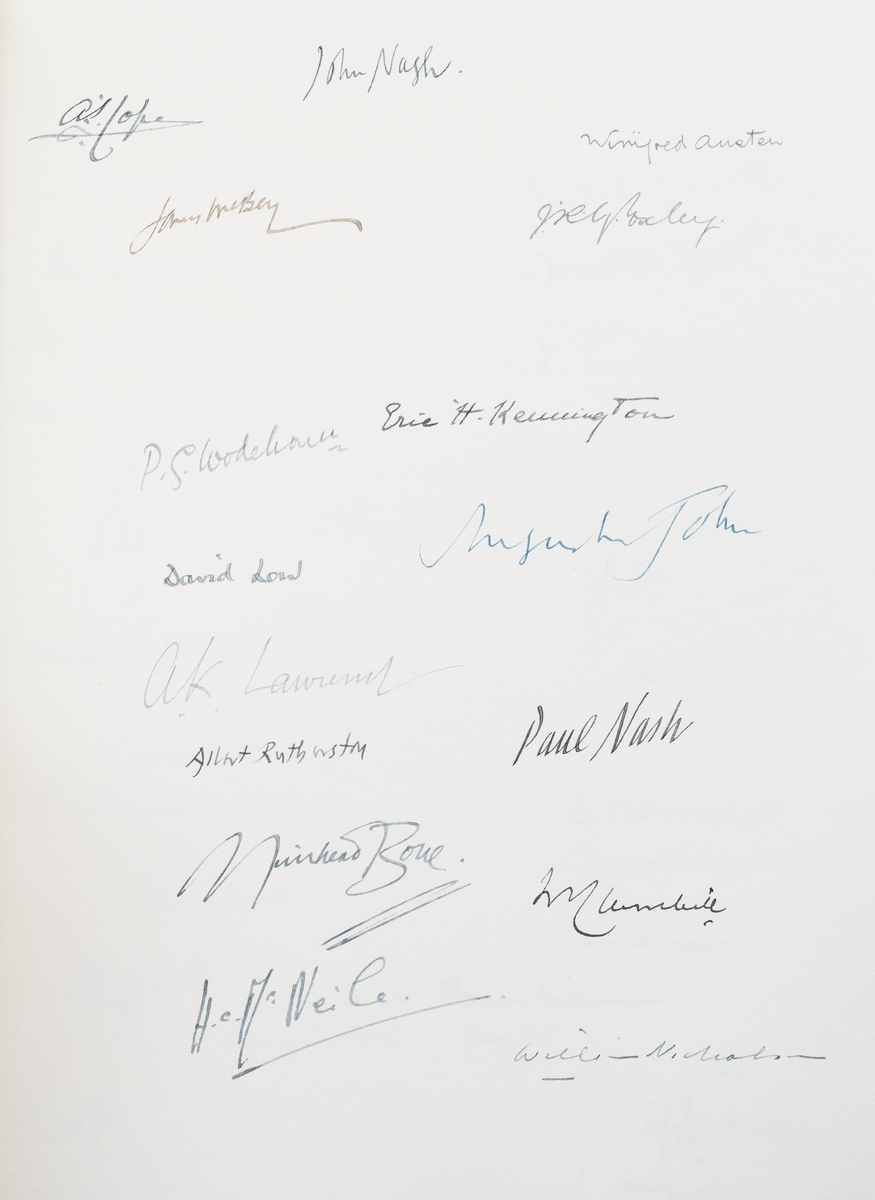 John Nash.
A.S. Cope
Winifred Austen
James McBey
J.R.G. Exley.
Eric H. Kennington
P.G. Wodehouse
Augustus John
David Low
A.K. Lawrence
Paul Nash
Albert Rutherston
Muirhead Bone.
W Churchill
H.C. McNeile.
William Nicholson